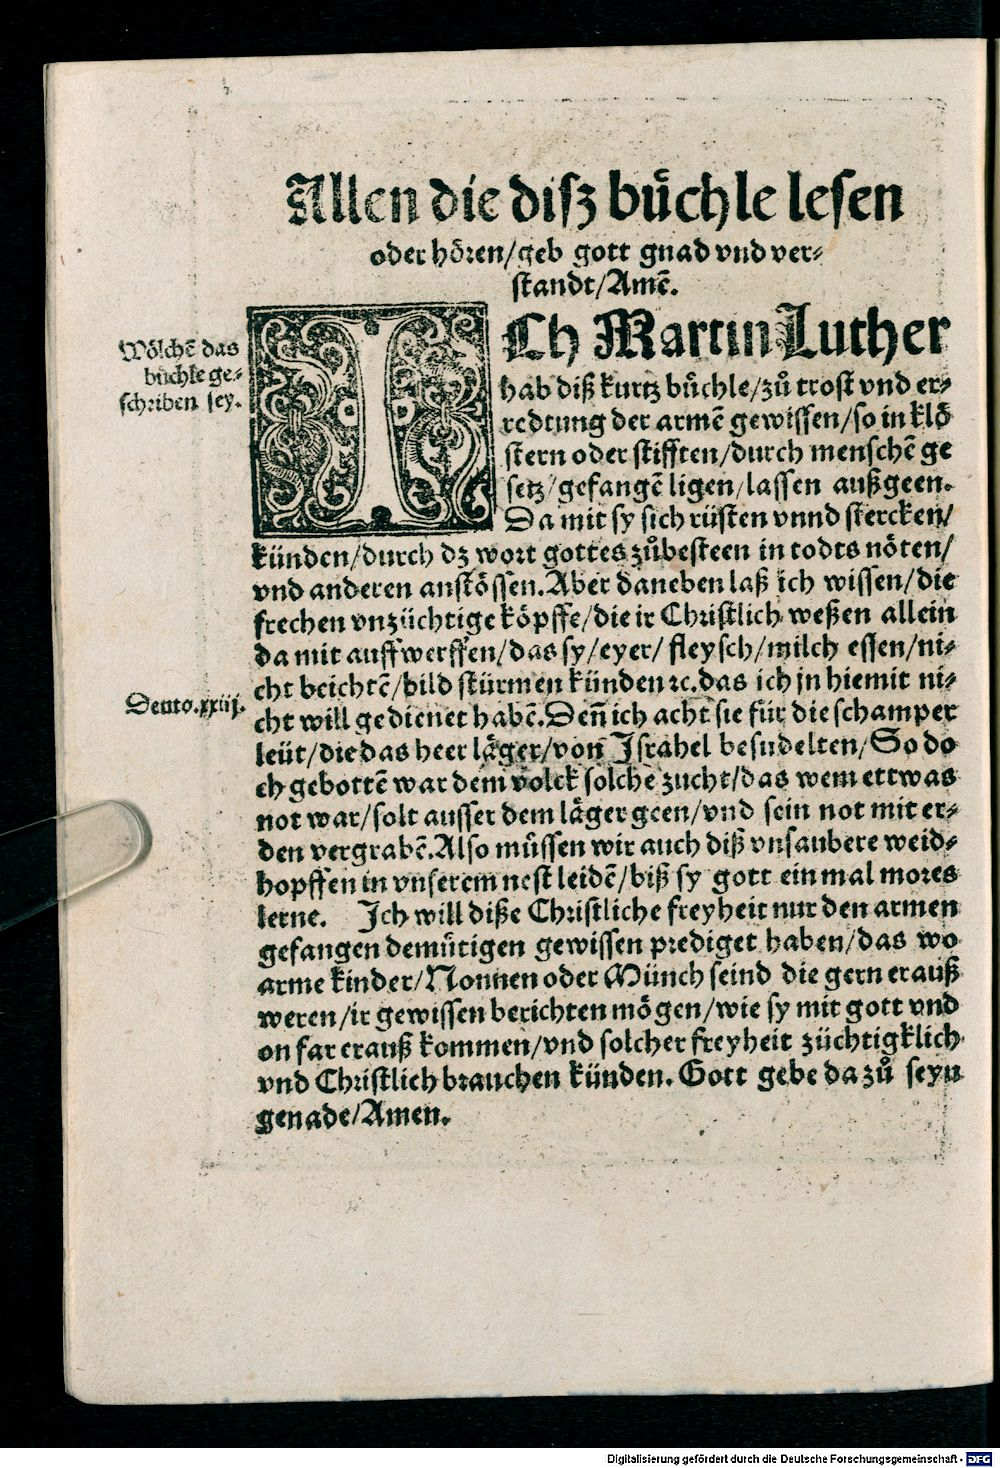 Allen die disz buͤchle lesen
oder hoͤren/geb gott gnad vnd ver⸗
standt/Amē.
Woͤlchē das
buͤchle ge⸗
schriben sey.
ICh Martin Luther
hab diß kurtz buͤchle/zuͦ trost vnd er⸗
redtung der armē gewissen/so in kloͤ
stern oder stifften/durch menschē ge
setz/gefangē ligen/lassen außgeen.
Da mit sy sich ruͤsten vnnd stercken/
kuͤnden/durch dz wort gottes zuͦbesteen in todts noͤten/
vnd anderen anstoͤssen. Aber daneben laß ich wissen/die
frechen vnzuͤchtige koͤpffe/die ir Christlich weßen allein
da mit auffwerffen/das sy/eyer/ fleysch/milch essen/ni⸗
cht beichtē/bild stuͤrmen kuͤnden ꝛc. das ich jn hiemit ni⸗
Deuto.xxiij.
cht will gedienet habē. Deñ ich acht sie fuͤr die schamper
leuͤt/die das heer laͤger/von Israhel besudelten/So do
ch gebottē war dem volck solche zucht/das wem ettwas
not war/solt ausser dem laͤger geen/vnd sein not mit er⸗
den vergrabē. Also muͤssen wir auch diß vnsaubere weid⸗
hopffen in vnserem nest leidē/biß sy gott ein mal mores
lerne. Ich will diße Christliche freyheit nur den armen
gefangen demuͤtigen gewissen prediget haben/das wo
arme kinder/Nonnen oder Muͤnch seind die gern erauß
weren/ir gewissen berichten moͤgen/wie sy mit gott vnd
on far erauß kommen/vnd solcher freyheit zuͤchtigklich
vnd Christlich brauchen kuͤnden. Gott gebe da zuͦ seyn
genade/Amen.
Digitalisierung gefördert durch die Deutsche Forschungsgemeinschaft - DFG